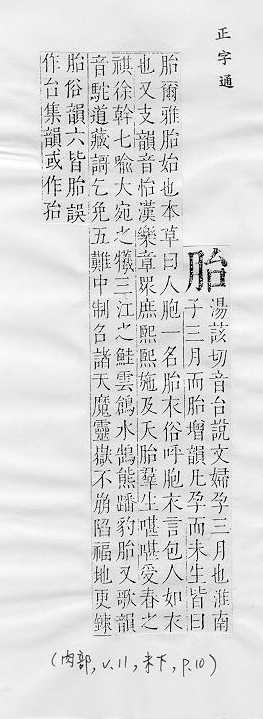 正字通
胎 湯該切音台說文婦孕三月也淮南
子三月而胎增韻凡孕而未生皆曰
胎爾雅胎始也本草曰人胞一名胎衣俗呼胞衣言包人如衣
也又支韻音怡漢樂章眾庶熙熙施及夭胎羣生啿啿受春之
祺徐幹七喻大宛之犧三江之鮭雲鶬水鵠熊蹯豹胎又歌韻
音駝道藏謌乞免五難中制名諸天魔靈嶽不崩陷福地更鍊
胎俗韻六皆胎誤
作台集韻或作孡
(肉部, v.11, 未下, p.10)